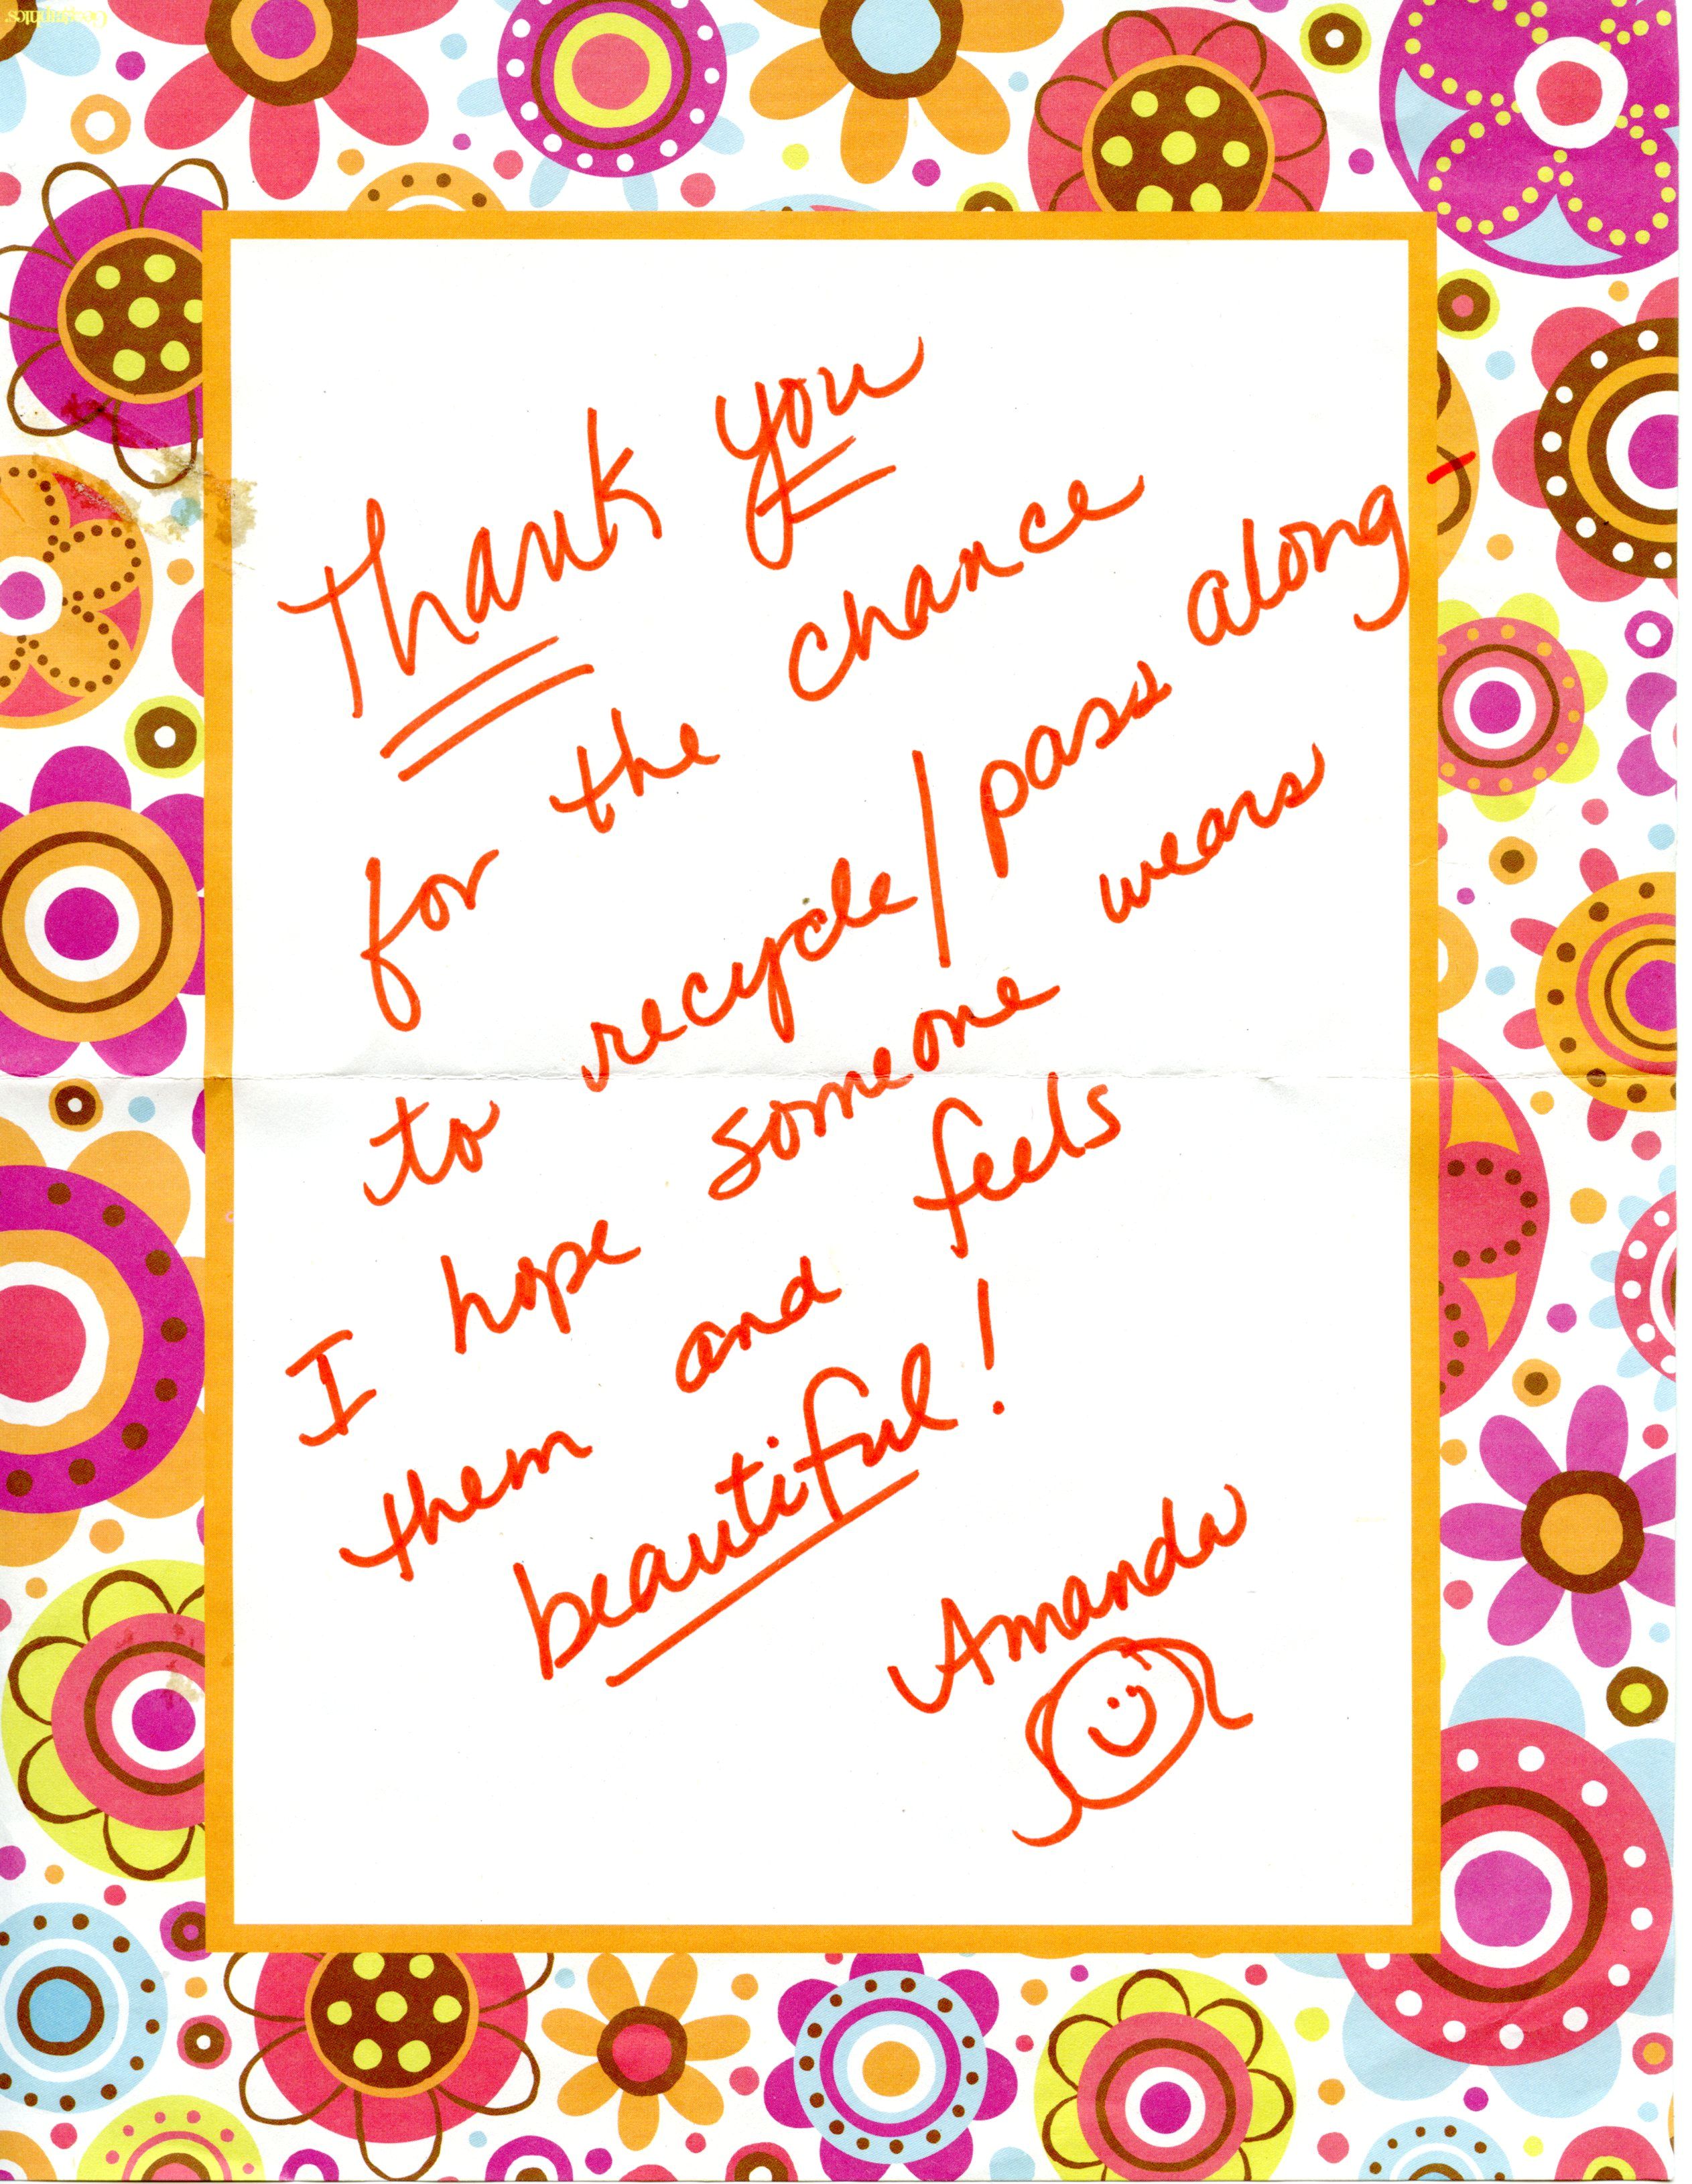 Geographics
Thank you
for the chance
to recycle/pass along -
I hope someone wears
them and feels
beautiful!
Amanda